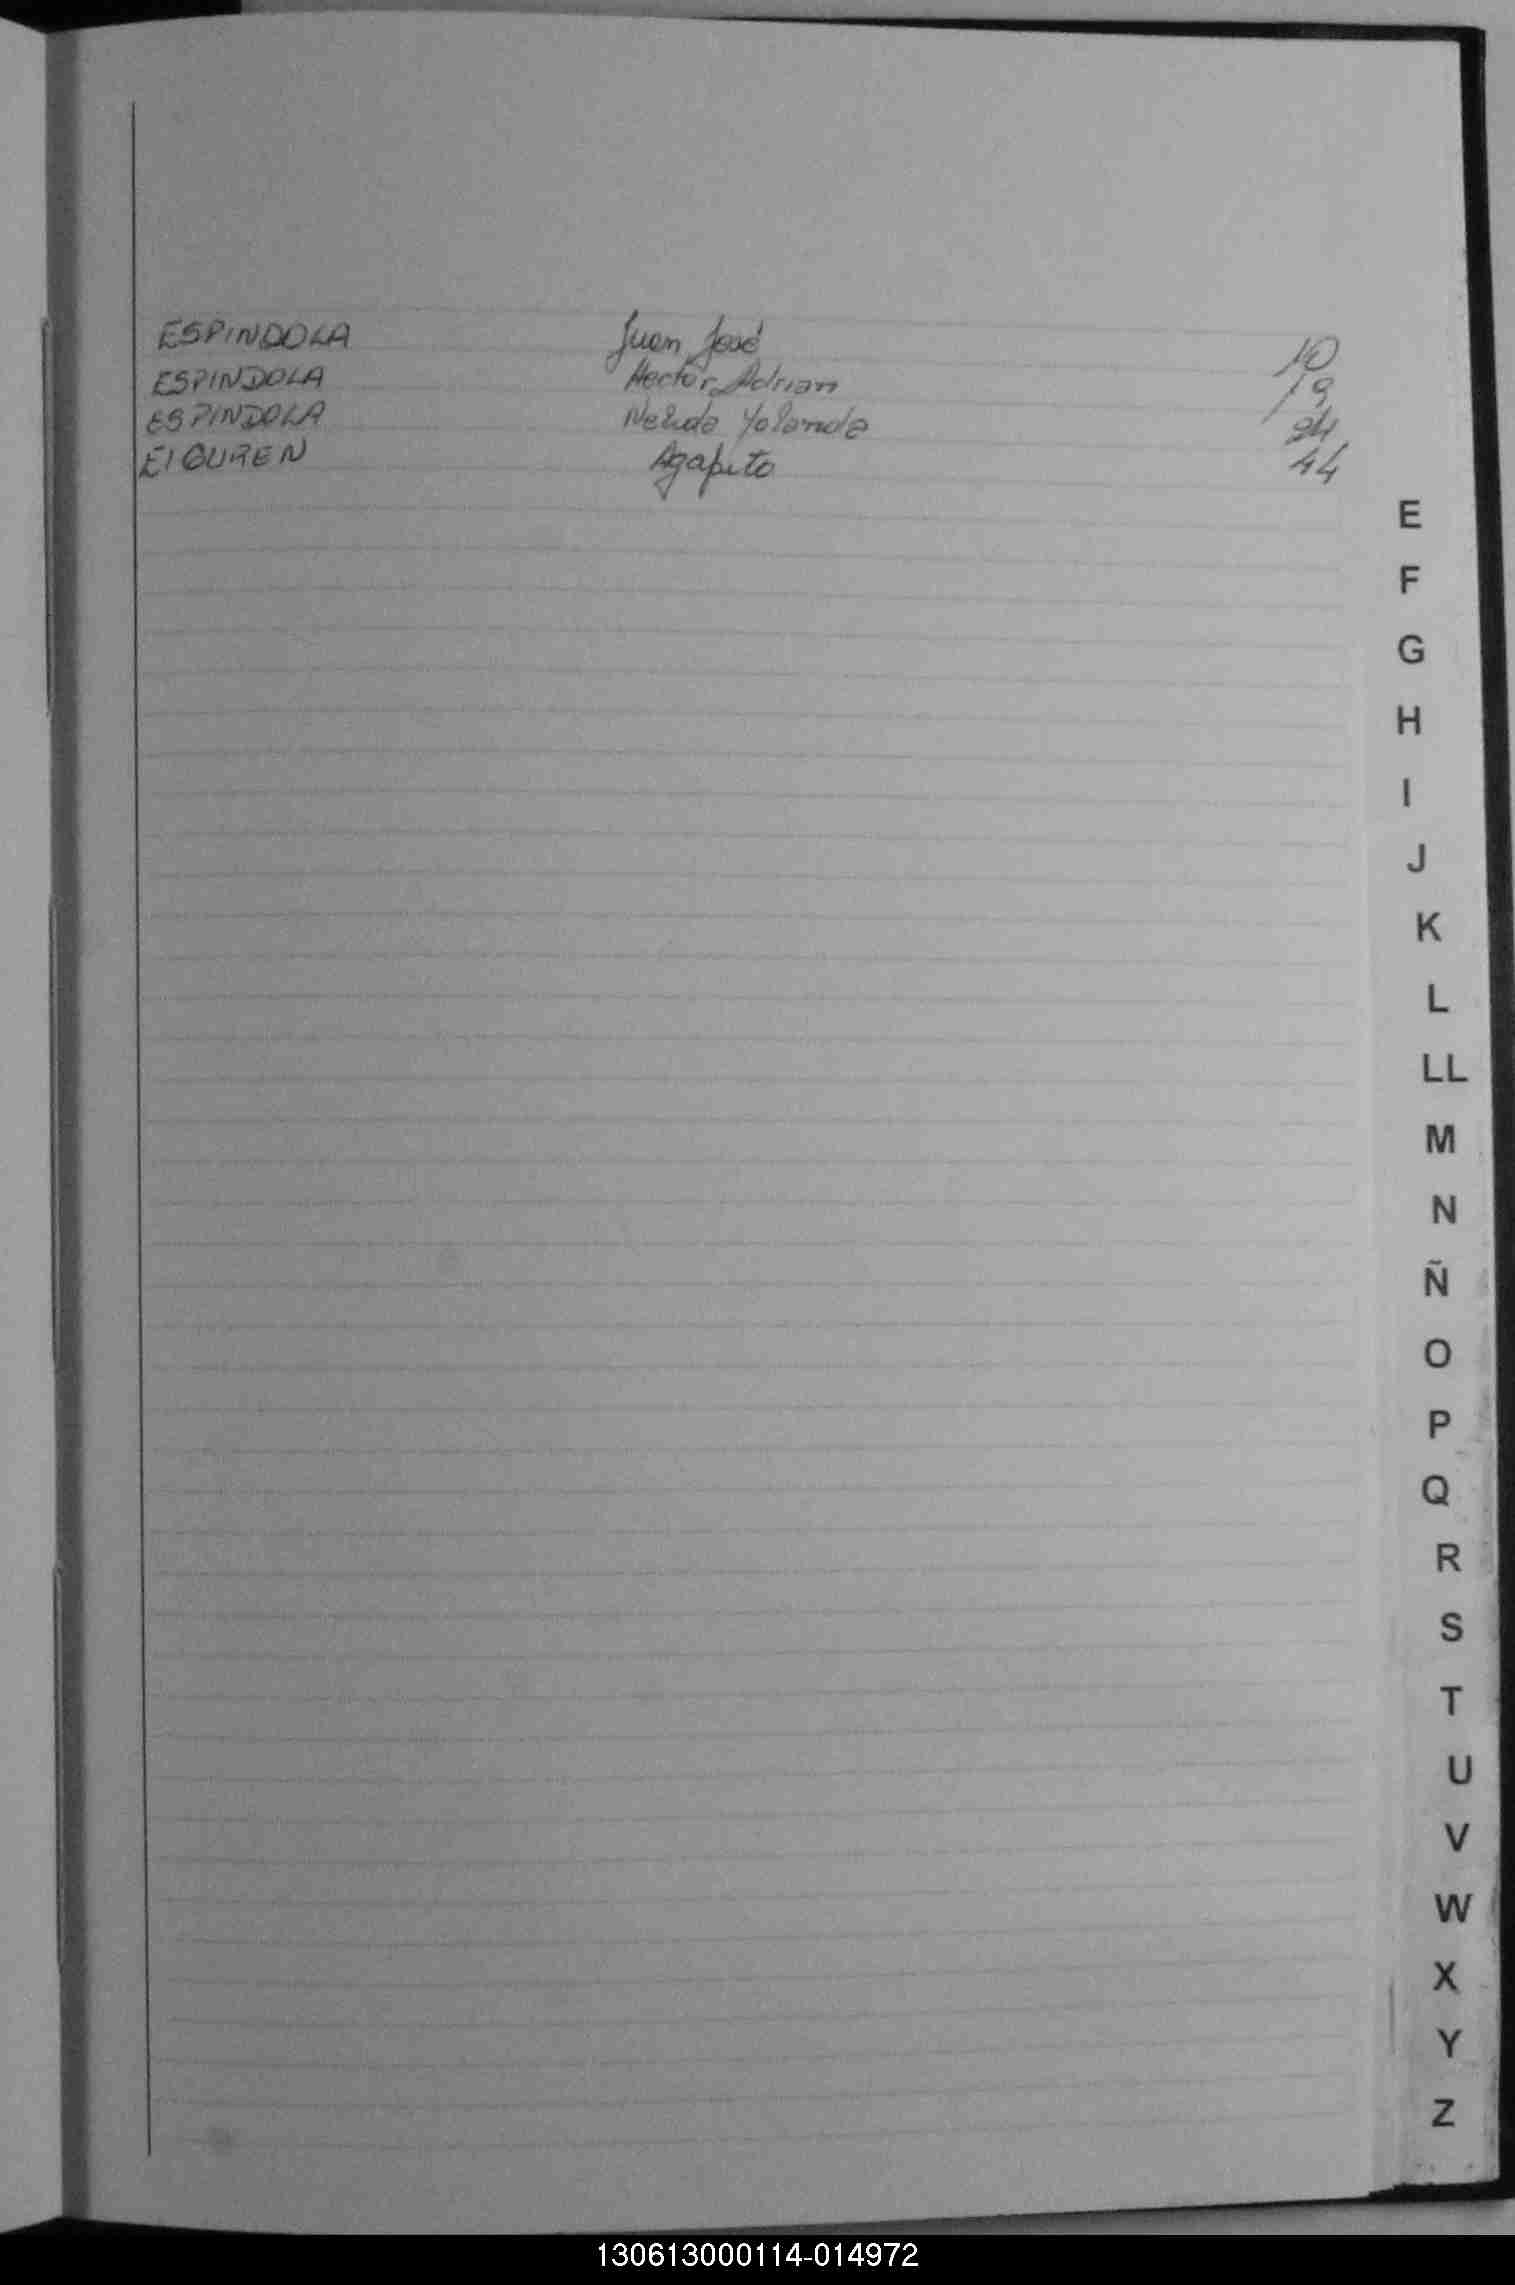 ESPINDOLA Juan José 10
ESPINDOLA Hector Adrian 19
ESPINDOLA Nelida Yolanda 24
EIGUREN Agapito 44
E
F
G
H
I
J
K
L
LL
M
N
Ñ
O
P
Q
R
S
T
U
V
W
X
Y
Z
130613000114-014972